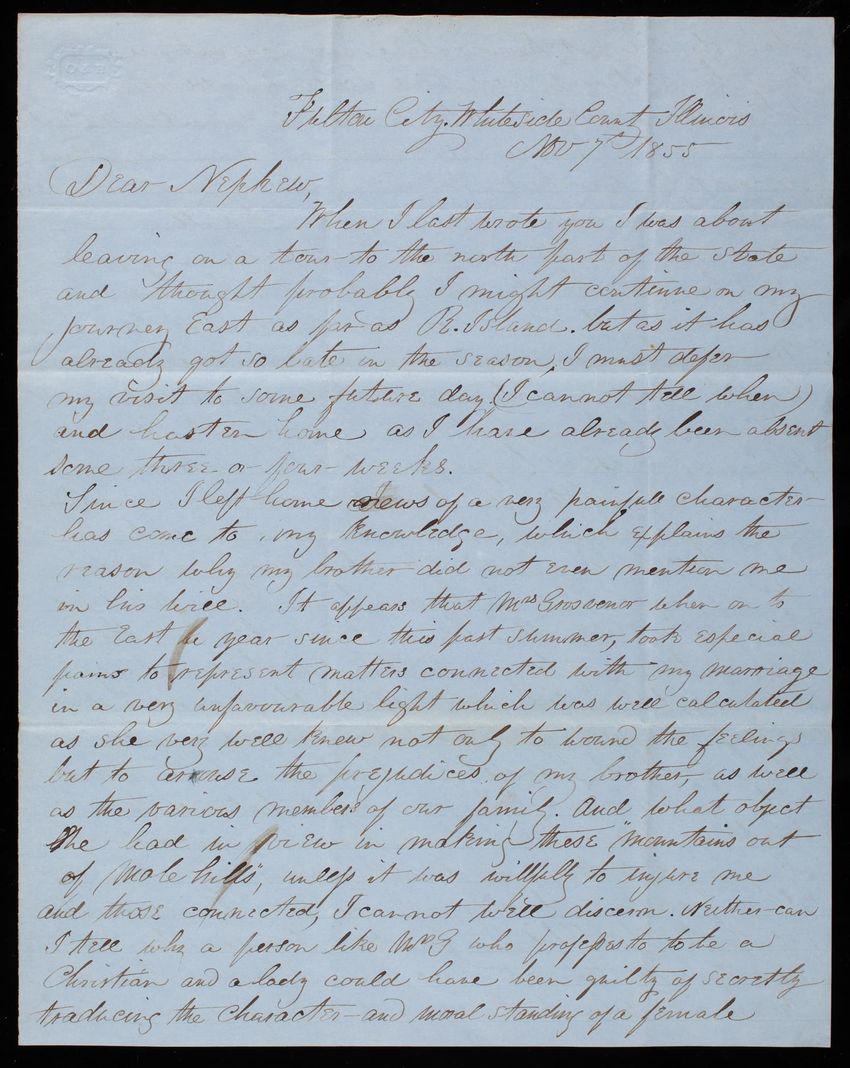 Fulton City. Whiteside County Illinois
Nov 7th 1855
Dear Nephew,
When I last wrote you I was about
leaving on a tour to the north part of the State
and thought probably I might continue on my
journey East as far as R. Island. but as it has
already got so late in the season, I must defer
my visit to some future day (I cannot tell when)
and hasten home as I have already been absent
some three or four weeks.
Since I left home news of a very painfull character
has come to my knowledge, which explains the
reason why my brother did not even mention me
in his will. It appears that Mrs Grosvenor when on to
the East a year since this past summer, took especial
pains to represent matters connected with my marriage
in a very unfavourable light which was well calculated
as she very well knew not only to wound the feelings
but to arouse the prejudices of my brother, as well
as the various members of our family. And what object
She had in view in making these "mountains out
of mole hills", unless it was willfully to injure me
and those connected, I can not well discern. Neither can
I tell why a person like Mrs G who professes to be a
Christian and a lady could have been guilty of secretly
traducing the character and moral standing of a female